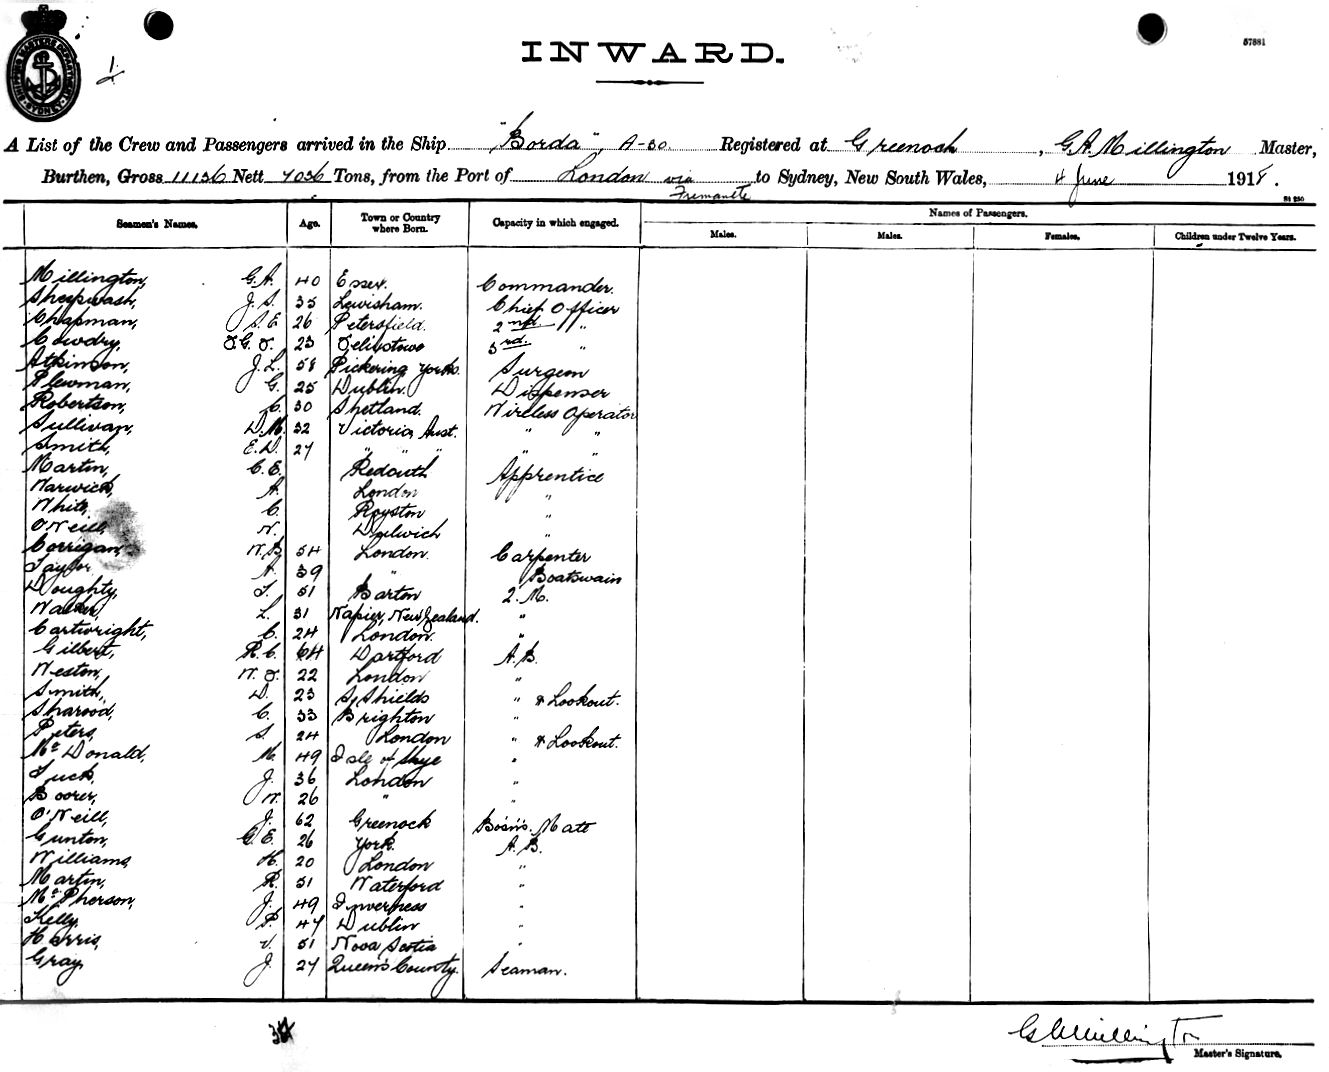 INWARD.
57881
A List of the Crew and Passengers arrived in the Ship "Borda", A-30 Registered at Greenock, G.A. Millington Master,
Burthen, Gross 11136 Nett 7036 Tons, from the Port of London via Fremantle to Sydney, New South Wales, 4 June 1918.
Names of Passengers.
Seamen's Names. Age. Town or Country where Born. Capacity in which engaged. Males. Males. Females. Children under Twelve Years.
Millington, G.A. 40 Essex. Commander.
Sheepwash, J.S. 35 Lewisham. Chief Officer
Chapman, S.E 26 Petersfield. 2nd "
Cowdry, F.G.F. 23 Felixstowe 3rd. "
Atkinson, J.L. 58 Pickering Yorks. Surgeon
Plewman, G. 25 Dublin. Dispenser
Robertson, C. 30 Shetland. Wireless Operator
Sullivan, D.M. 32 Victoria, Aust. " "
Smith, E.D. 27 " " " " "
Martin, C.E. Redouth Apprentice
Warwick, A. London "
White, C. Royston "
O'Neill, W. Dulwich "
Corrigan, W.B 54 London. Carpenter
Taylor A. 39 " Boatswain
Doughty, T. 51 Barton 2. M.
Walker L. 31 Napier, New Zealand. "
Cartwright, C. 24 London. "
Gilbert, R.C. 64 Dartford A.B.
Weston, W.F. 22 London "
Smith, D. 23 S. Shields " & Lookout.
Sharood, C. 33 Brighton "
Peters, S. 24 London " & Lookout.
McDonald, M. 49 Isle of Skye "
Tuck, J. 36 London "
Boorer, W. 26 " "
O'Neill, J. 62 Greenock Bosn's. Mate
Gunton, G.E. 26 York. A.B.
Williams, H. 20 London "
Martin, R. 51 Waterford "
McPherson, J. 49 Inverness "
Kelly, P. 47 Dublin "
Harris, V. 51 Nova Scotia "
Gray, J. 27 Queen's County. Seaman.
G A Millington
Master's Signature.